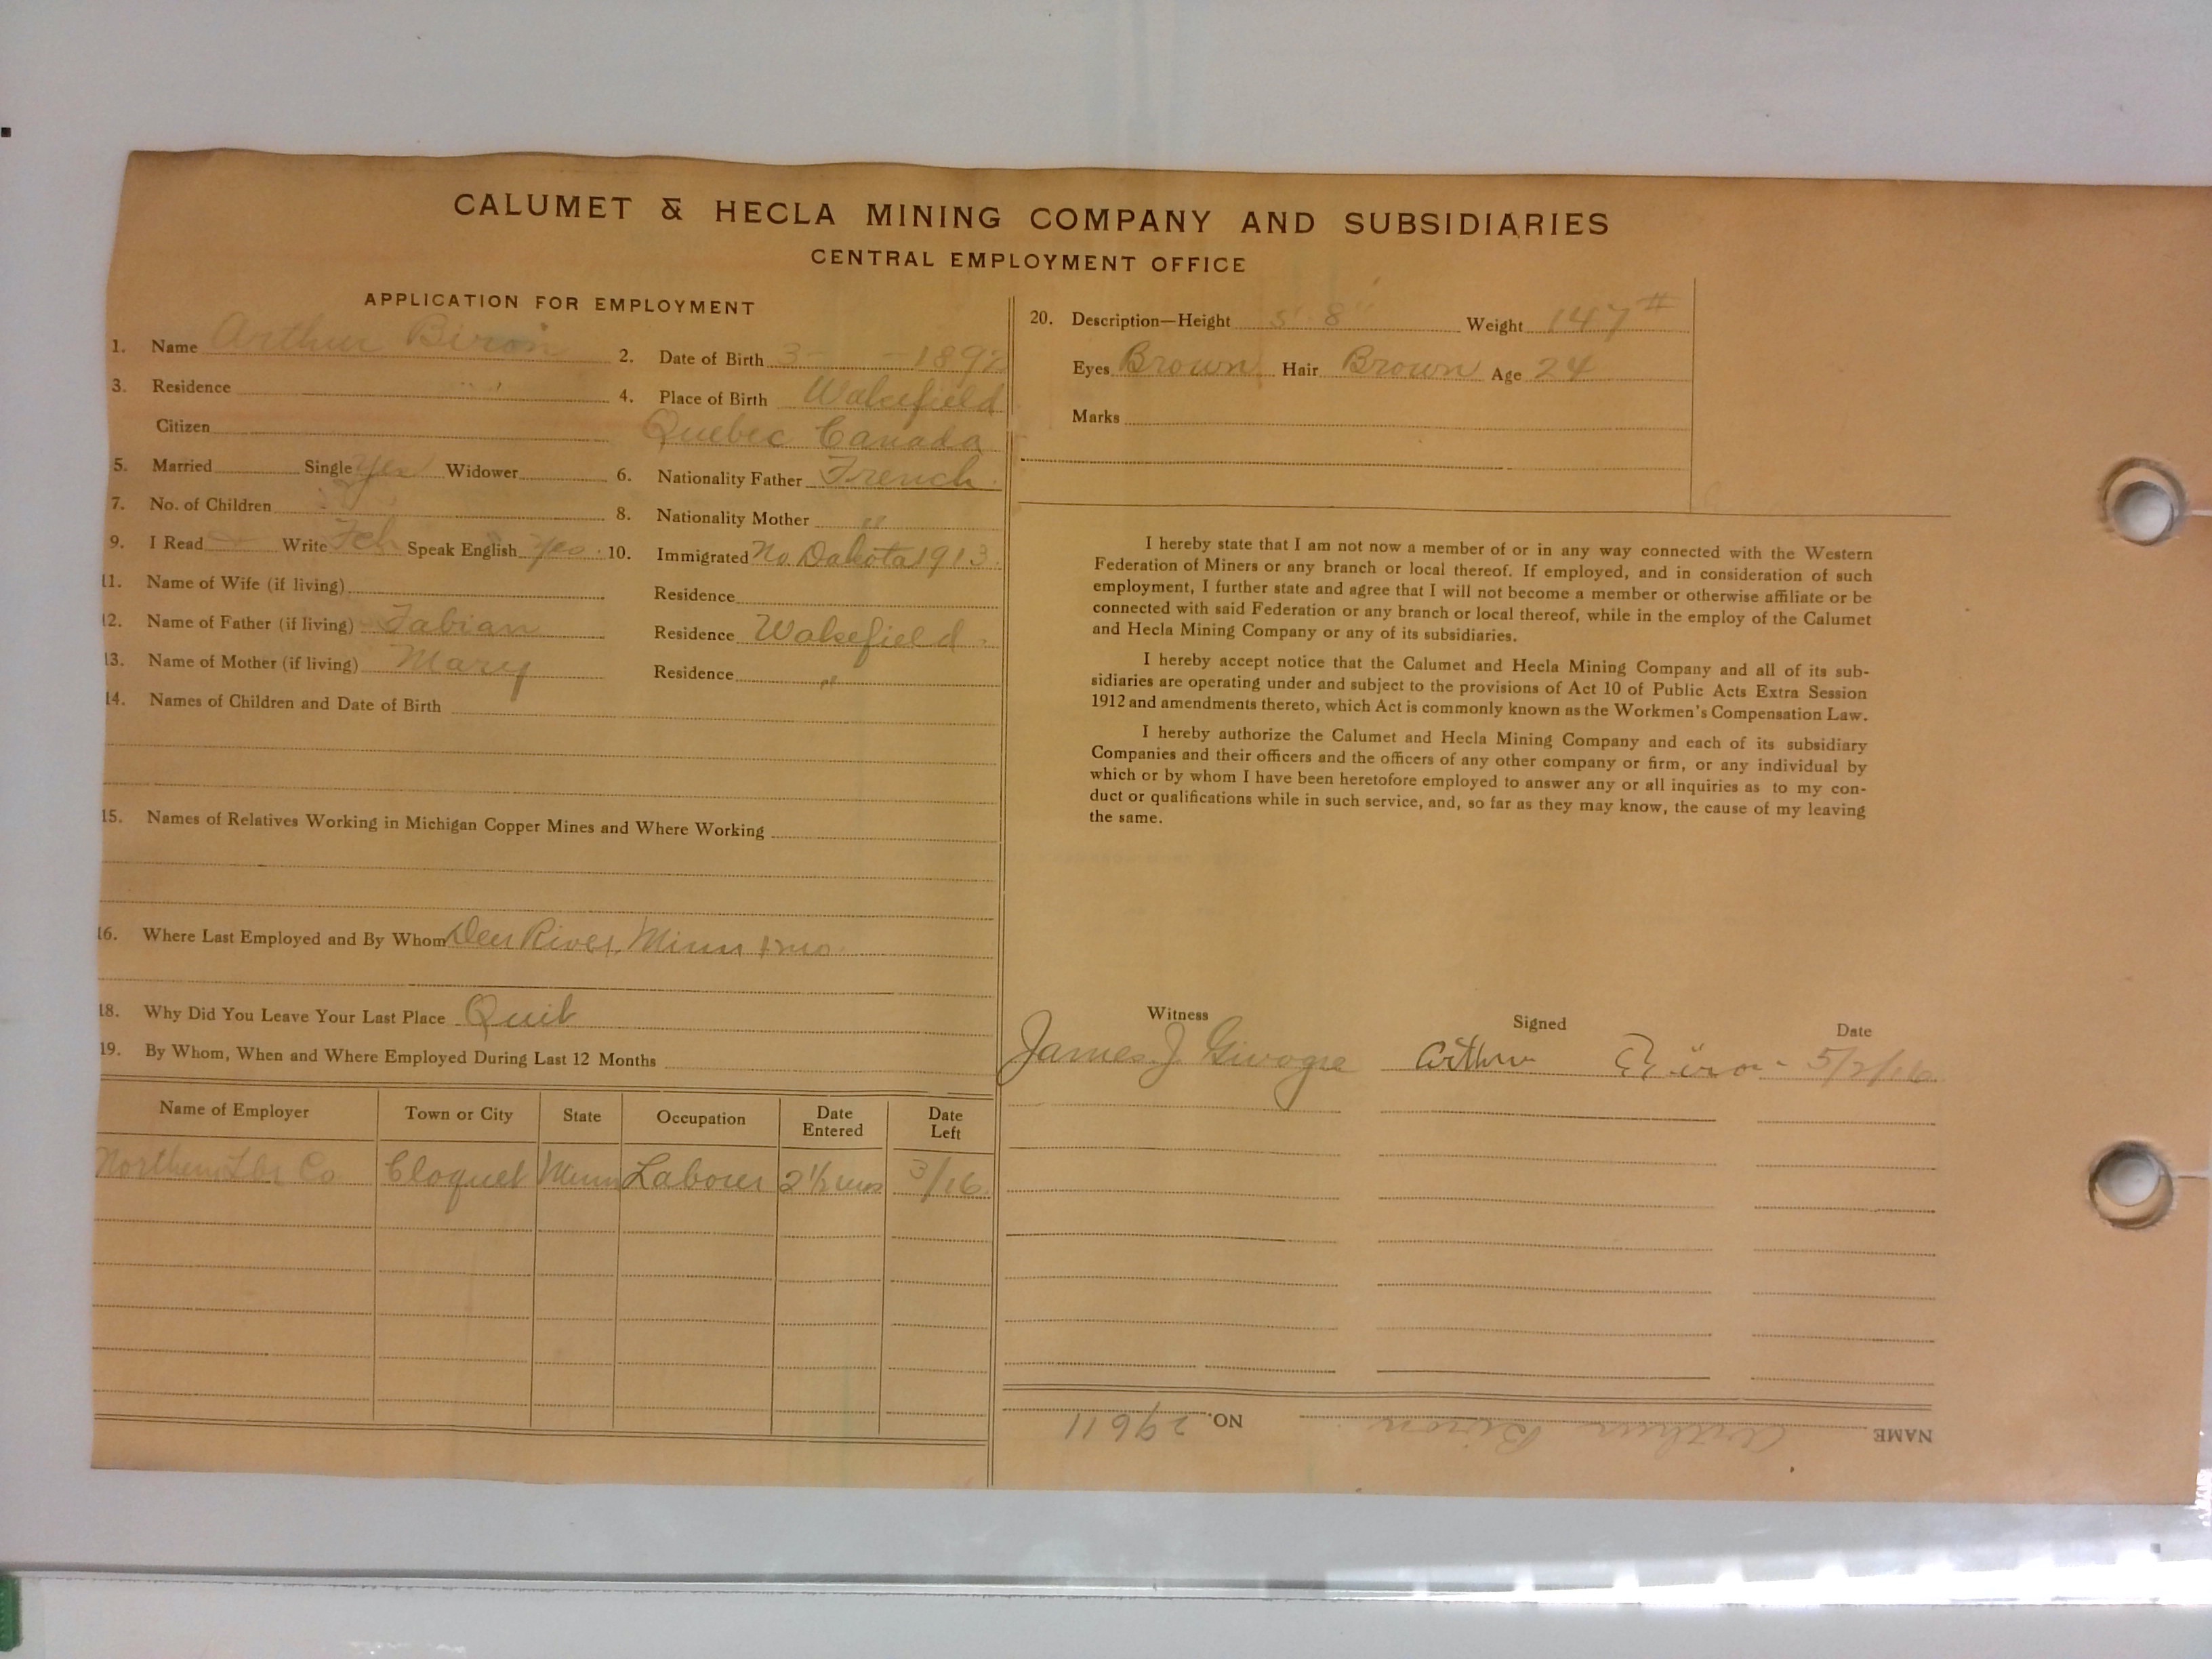 CALUMET & HECLA MINING COMPANY AND SUBSIDIARIES
CENTRAL EMPLOYMENT OFFICE
APPLICATION FOR EMPLOYMENT
1. Name Arthur Biron 2. Date of Birth 3 - - 1892
3. Residence 4. Place of Birth Wakefield
Citizen Quebec Canada
5. Married Single Yes Widower 6. Nationality Father French
7. No. of Children 8. Nationality Mother "
9. I Read Write Speak English Yes 10. Immigrated No. Dakota 1913
11. Name of Wife (if living) Residence
12. Name of Father (if living) Fabian Residence Wakefield
13. Name of Mother (if living) Mary Residence "
14. Names of Children and Date of Birth
15. Names of Relatives Working in Michigan Copper Mines and Where Working
16. Where Last Employed and By Whom River, Minn
18. Why Did You Leave Your Last Place Quit
19. By Whom, When and Where Employed During Last 12 Months
Name of Employer Town or City State Occupation Date Entered Date Left
Northern Lbr Co. Cloquet Minn Laborer 2 1/2 mos 3/16
20. Description—Height 5' 8" Weight 147 #
Eyes Brown Hair Brown Age 24
Marks
I hereby state that I am not now a member of or in any way connected with the Western
Federation of Miners or any branch or local thereof. If employed, and in consideration of such
employment, I further state and agree that I will not become a member or otherwise affiliate or be
connected with said Federation or any branch or local thereof, while in the employ of the Calumet
and Hecla Mining Company or any of its subsidiaries.
I hereby accept notice that the Calumet and Hecla Mining Company and all of its sub-
sidiaries are operating under and subject to the provisions of Act 10 of Public Acts Extra Session
1912 and amendments thereto, which Act is commonly known as the Workmen's Compensation Law.
I hereby authorize the Calumet and Hecla Mining Company and each of its subsidiary
Companies and their officers and the officers of any other company or firm, or any individual by
which or by whom I have been heretofore employed to answer any or all inquiries as to my con-
duct or qualifications while in such service, and, so far as they may know, the cause of my leaving
the same.
Witness Signed Date
James J. Arthur Biron 5/2/16
NAME Arthur Biron NO. 29611